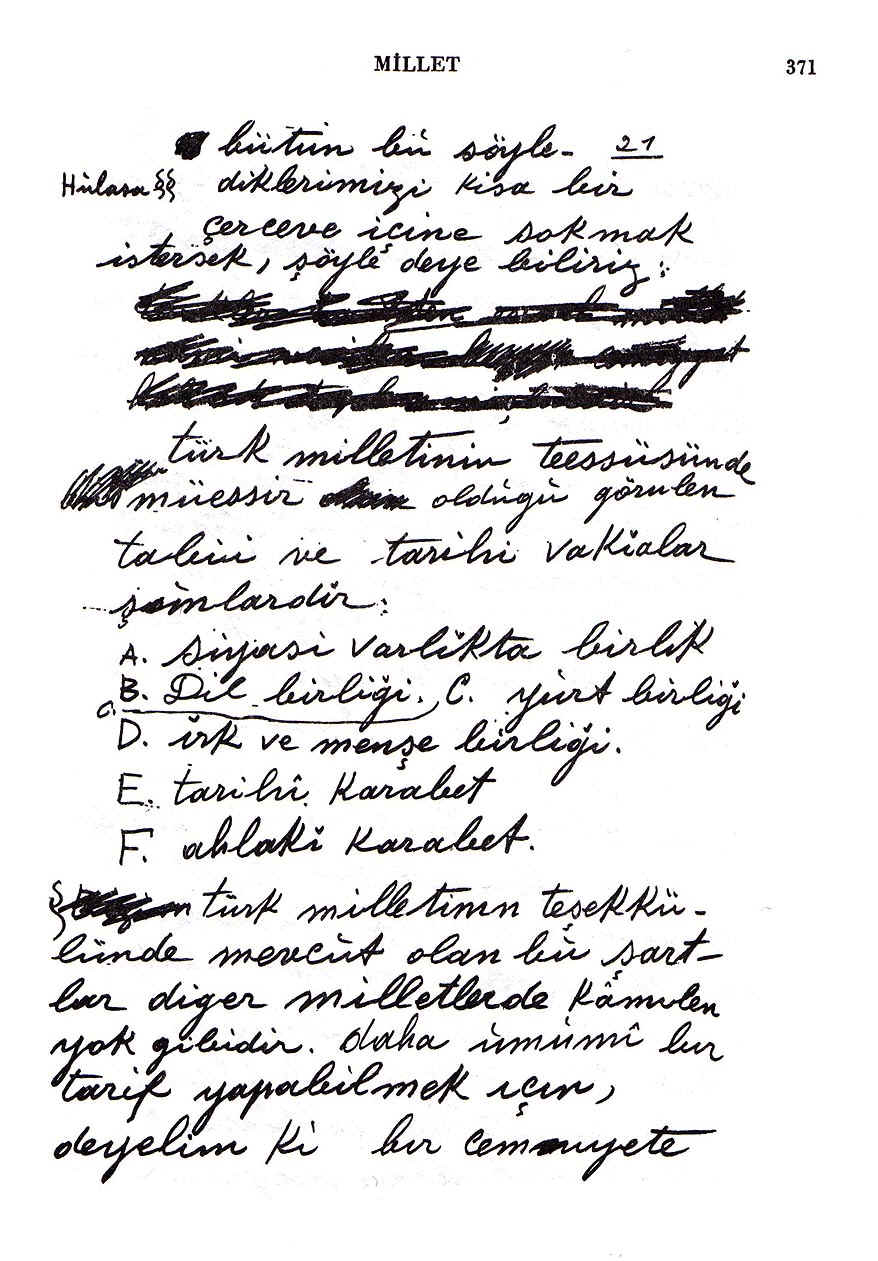 MİLLET 371
bütün bu söyle- 21
Hülasa §§ diklerimizi kisa bir
çerceve içine sokmak
istersek, şöyle deye biliriz:
türk milletinin teessüsünde
müessir oldùgù görülen
tabiî ve tarihi vakialar
şunlardir:
A. siyasi varlikta birlik
B. Dil birliği. C. yùrt birliği
D. irk ve menşe birliği.
E. tarihî karabet
F. ahlakî karabet.
türk milletinin teşekkü-
lünde mevcùt olan bù şart-
lar diger milletlerde kâmilen
yok gibidir. daha ùmùmî bir
tarif yapabilmek için,
deyelim ki bir cemiyete